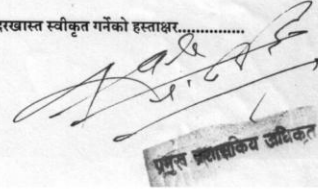 दरखास्त स्वीकृत गर्नेको हस्ताक्षर................
प्रमुख प्रशासकिय अधिकृत